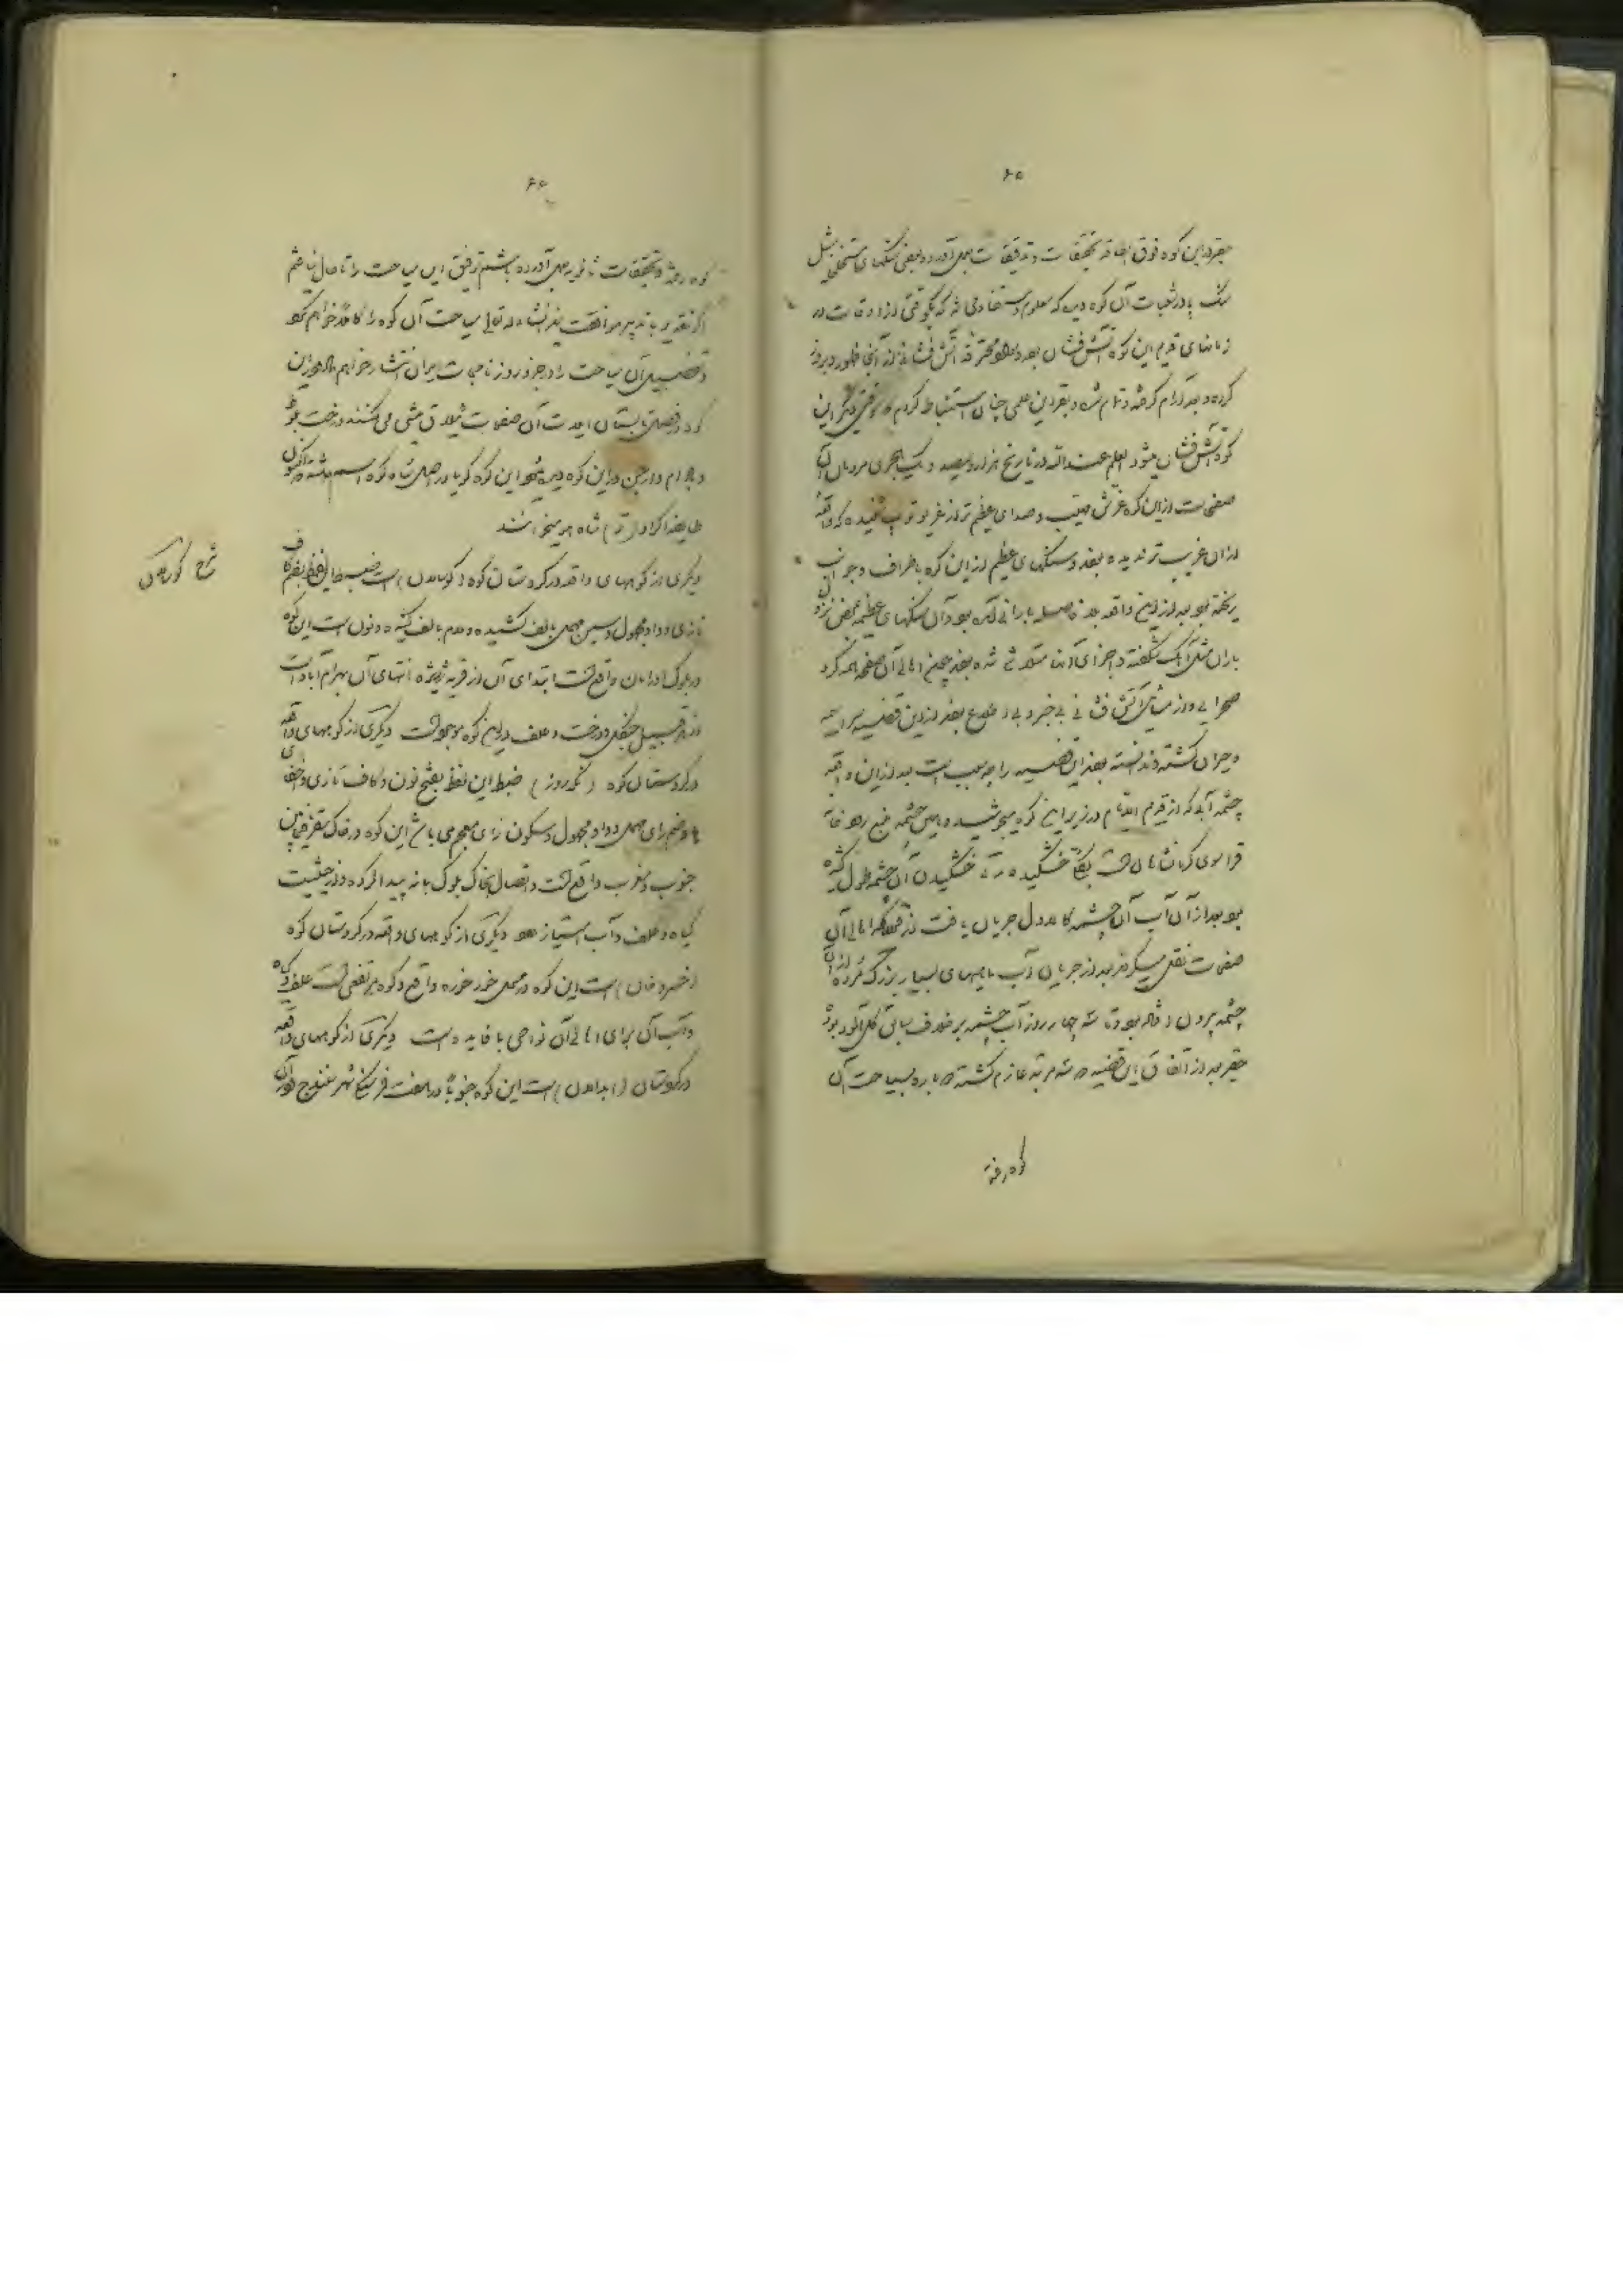 ۶۵
حقیر در این کوه فوق الطاقه تحقیقات و تدقیقات بعمل آورده و بعضی سنگهای مثل
سنگ پا در شعبات آن کوه دیده که معلوم و مستفاد می شد که یکوقتی از اوقات در
زمانهای قدیم این کوه آتش فشان بوده و مواد محترقه آتش فشانی از آنجا ظهور و بروز
کرده و بعد آرام گرفته و تمام شده و بقراین علمی چنان استنباط کردم که وقتی دیگر این
کوه آتش فشان میشود العلم عند الله در تاریخ هزار و سیصد و یک هجری مردمان آن
صفحات از این کوه غرش مهیب و صدای عظیم تر از غریو توپ شنیده که واقعه
از آن غریب تر ندیده بودند و سنگهای عظیم از این کوه باطراف و جوانب
ریخته بود بعد از این واقعه بلافاصله بارانی آمده بود و آن سنگهای عظیمه بمحض نزول
باران مثل آهک شکفته و اجزای آنها متلاشی شده بودند چون اهالی آن صفحه همه کرد
صحرایی و از مسائل آتش فشانی بی خبر و بی اطلاع بودند از این قضیه سراسیمه
و حیران گشته و ندانسته بودند این قضیه را چه سبب است بعد از این واقعه
چشمه آبی که از قدیم الایام در زیر این کوه میجوشیده و این چشمه منبع رودخانه
قراسوی کرمانشاهان است بکلی خشکیده مدت خشکیدن آن چشمه طول کشیده
بود بعد از آن آب آن چشمه کالاول جریان یافت از قراریکه اهالی آن
صفحات نقل میکردند بعد از جریان آب ماهیهای بسیار بزرگ مرده از آن
چشمه بیرون افتاده بود و تا سه چهار روز آب چشمه بر خلاف سابق گل آلود بود
حقیر بعد از اتفاق این قضیه دو سه مرتبه عازم گشته دوباره بسیاحت آن
کوه رفته
۶۶
کوه رفته و تحقیقات ثانویه بعمل آورده باشم توفیق این سیاحت را تا حال نیافتم
اگر تقدیر با تدبیر موافقت نمود انشاء الله تعالی سیاحت آن کوه را کاملا خواهم نمود
و تفصیل آن سیاحت را در جزو روزنامجات ایران انتشار خواهم داد در این
کوه در فصل تابستان ایلات آن صفحات ییلاق میشی می کنند درخت بلوط
و بادام و ارجن در این کوه دیده میشود این کوه گویا در اصل شاه کوه
طایفه اکراد آن را شاهو میخوانند
دیگری از کوههای واقعه در کردستان کوه (کوسالان) است ضبط این لفظ بضم کاف
تازی و واو مجهول و سین مهمل بالف کشیده و لام بالف کشیده و نون است این کوه
در بلوک اورامان واقع است ابتدای آن از قریه انتهای آن بهرام آباد است
از هر قبیل جنگل و درخت و علف در این کوه موجود است دیگری از کوههای واقعه
در کردستان کوه (نکه روز) ضبط این لفظ بفتح نون و کاف تازی و خفای
ها و ضم رای مهمل و واو مجهول و سکون زای معجم می باشد این کوه در خاک سقز فیمابین
جنوب و مغرب واقع است و اتصال بخاک بلوک بانه پیدا کرده و از حیثیت
گیاه و علف و آب امتیاز دارد دیگری از کوههای واقعه در کردستان کوه
(خسرو خان) است این کوه در محل خورخوره واقع و کوه مرتفعی است علف و گیاه
و آب آن برای اهالی آن نواحی با فایده است دیگری از کوههای واقعه
در کردستان (ابدالان) است این کوه جنوبا در هفت فرسنگی شهر سنندج
شرح کوسالان